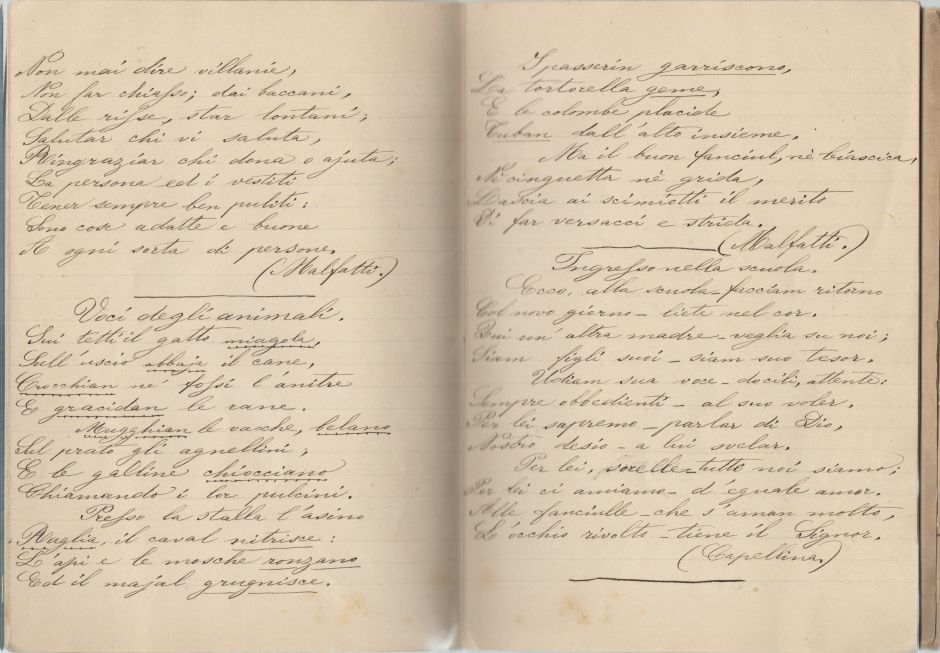 Non mai dire villanie,
Non far chiasso; dai baccani,
Dalle risse, star lontani;
Salutar chi vi saluta,
Ringraziar chi dona o ajuta;
La persona ed i vestiti
Tener sempre ben puliti:
Sono cose adatte e buone
A ogni sorta di persone.
(Malfatti.)
Voci degli animali.
Sui tetti il gatto miagola,
Sull'uscio abbaja il cane,
Crocchian ne' fossi l'anitre
E gracidan le rane.
Mugghian le vacche, belano
Sul prato gli agnellini;
E le galline chiocciano
Chiamando i lor pulcini.
Presso la stalla l'asino
Raglia, il caval nitrisce:
L'api e le mosche ronzano
Ed il majal grugnisce.
I passerin garriscono,
La tortorella geme,
E le colombe placide
Tuban dall'alto insieme.
Ma il buon fanciul, nè biascica,
Nè cinguetta nè grida,
Lascia ai scimiotti il merito
Di far versacci e strida.
(Malfatti.)
Ingresso nella scuola.
Ecco, alla scuola - facciam ritorno
Col novo giorno - liete nel cor.
Qui un'altra madre - veglia su noi;
Siam figli suoi - siam suo tesor.
Udiam sua voce - docili, attente:
Sempre obbedienti - al suo voler.
Per lei sapremo - parlar di Dio,
Nostro desio - a lui svelar.
Per lei, sorelle - tutte noi siamo;
Per lei ci amiamo - d'eguale amor.
Alle fanciulle - che s'aman molto,
L'occhio rivolto - tiene il Signor.
(Capellina)